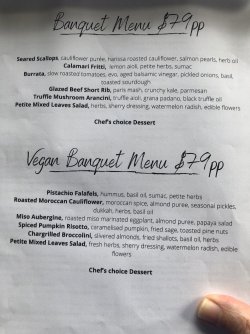 Banquet Menu $79pp
Seared Scallops, cauliflower purée, harissa roasted cauliflower, salmon pearls, herb oil
Calamari Fritti, lemon aioli, petite herbs, sumac
Burrata, slow roasted tomatoes, evo, aged balsamic vinegar, pickled onions, basil,
toasted sourdough
Glazed Beef Short Rib, paris mash, crunchy kale, parmesan
Truffle Mushroom Arancini, truffle aioli, grana padano, black truffle oil
Petite Mixed Leaves Salad, herbs, sherry dressing, watermelon radish, edible flowers
Chef's choice Dessert
Vegan Banquet Menu $79pp
Pistachio Falafels, hummus, basil oil, sumac, petite herbs
Roasted Moroccan Cauliflower, moroccan spice, almond puree, seasonal pickles,
dukkah, herbs, basil oil
Miso Aubergine, roasted miso marinated eggplant, almond puree, papaya salad
Spiced Pumpkin Risotto, caramelised pumpkin, fried sage, toasted pine nuts
Chargrilled Broccolini, slivered almonds, fried shallots, basil oil, herbs
Petite Mixed Leaves Salad, fresh herbs, sherry dressing, watermelon radish, edible
flowers
Chef's choice Dessert